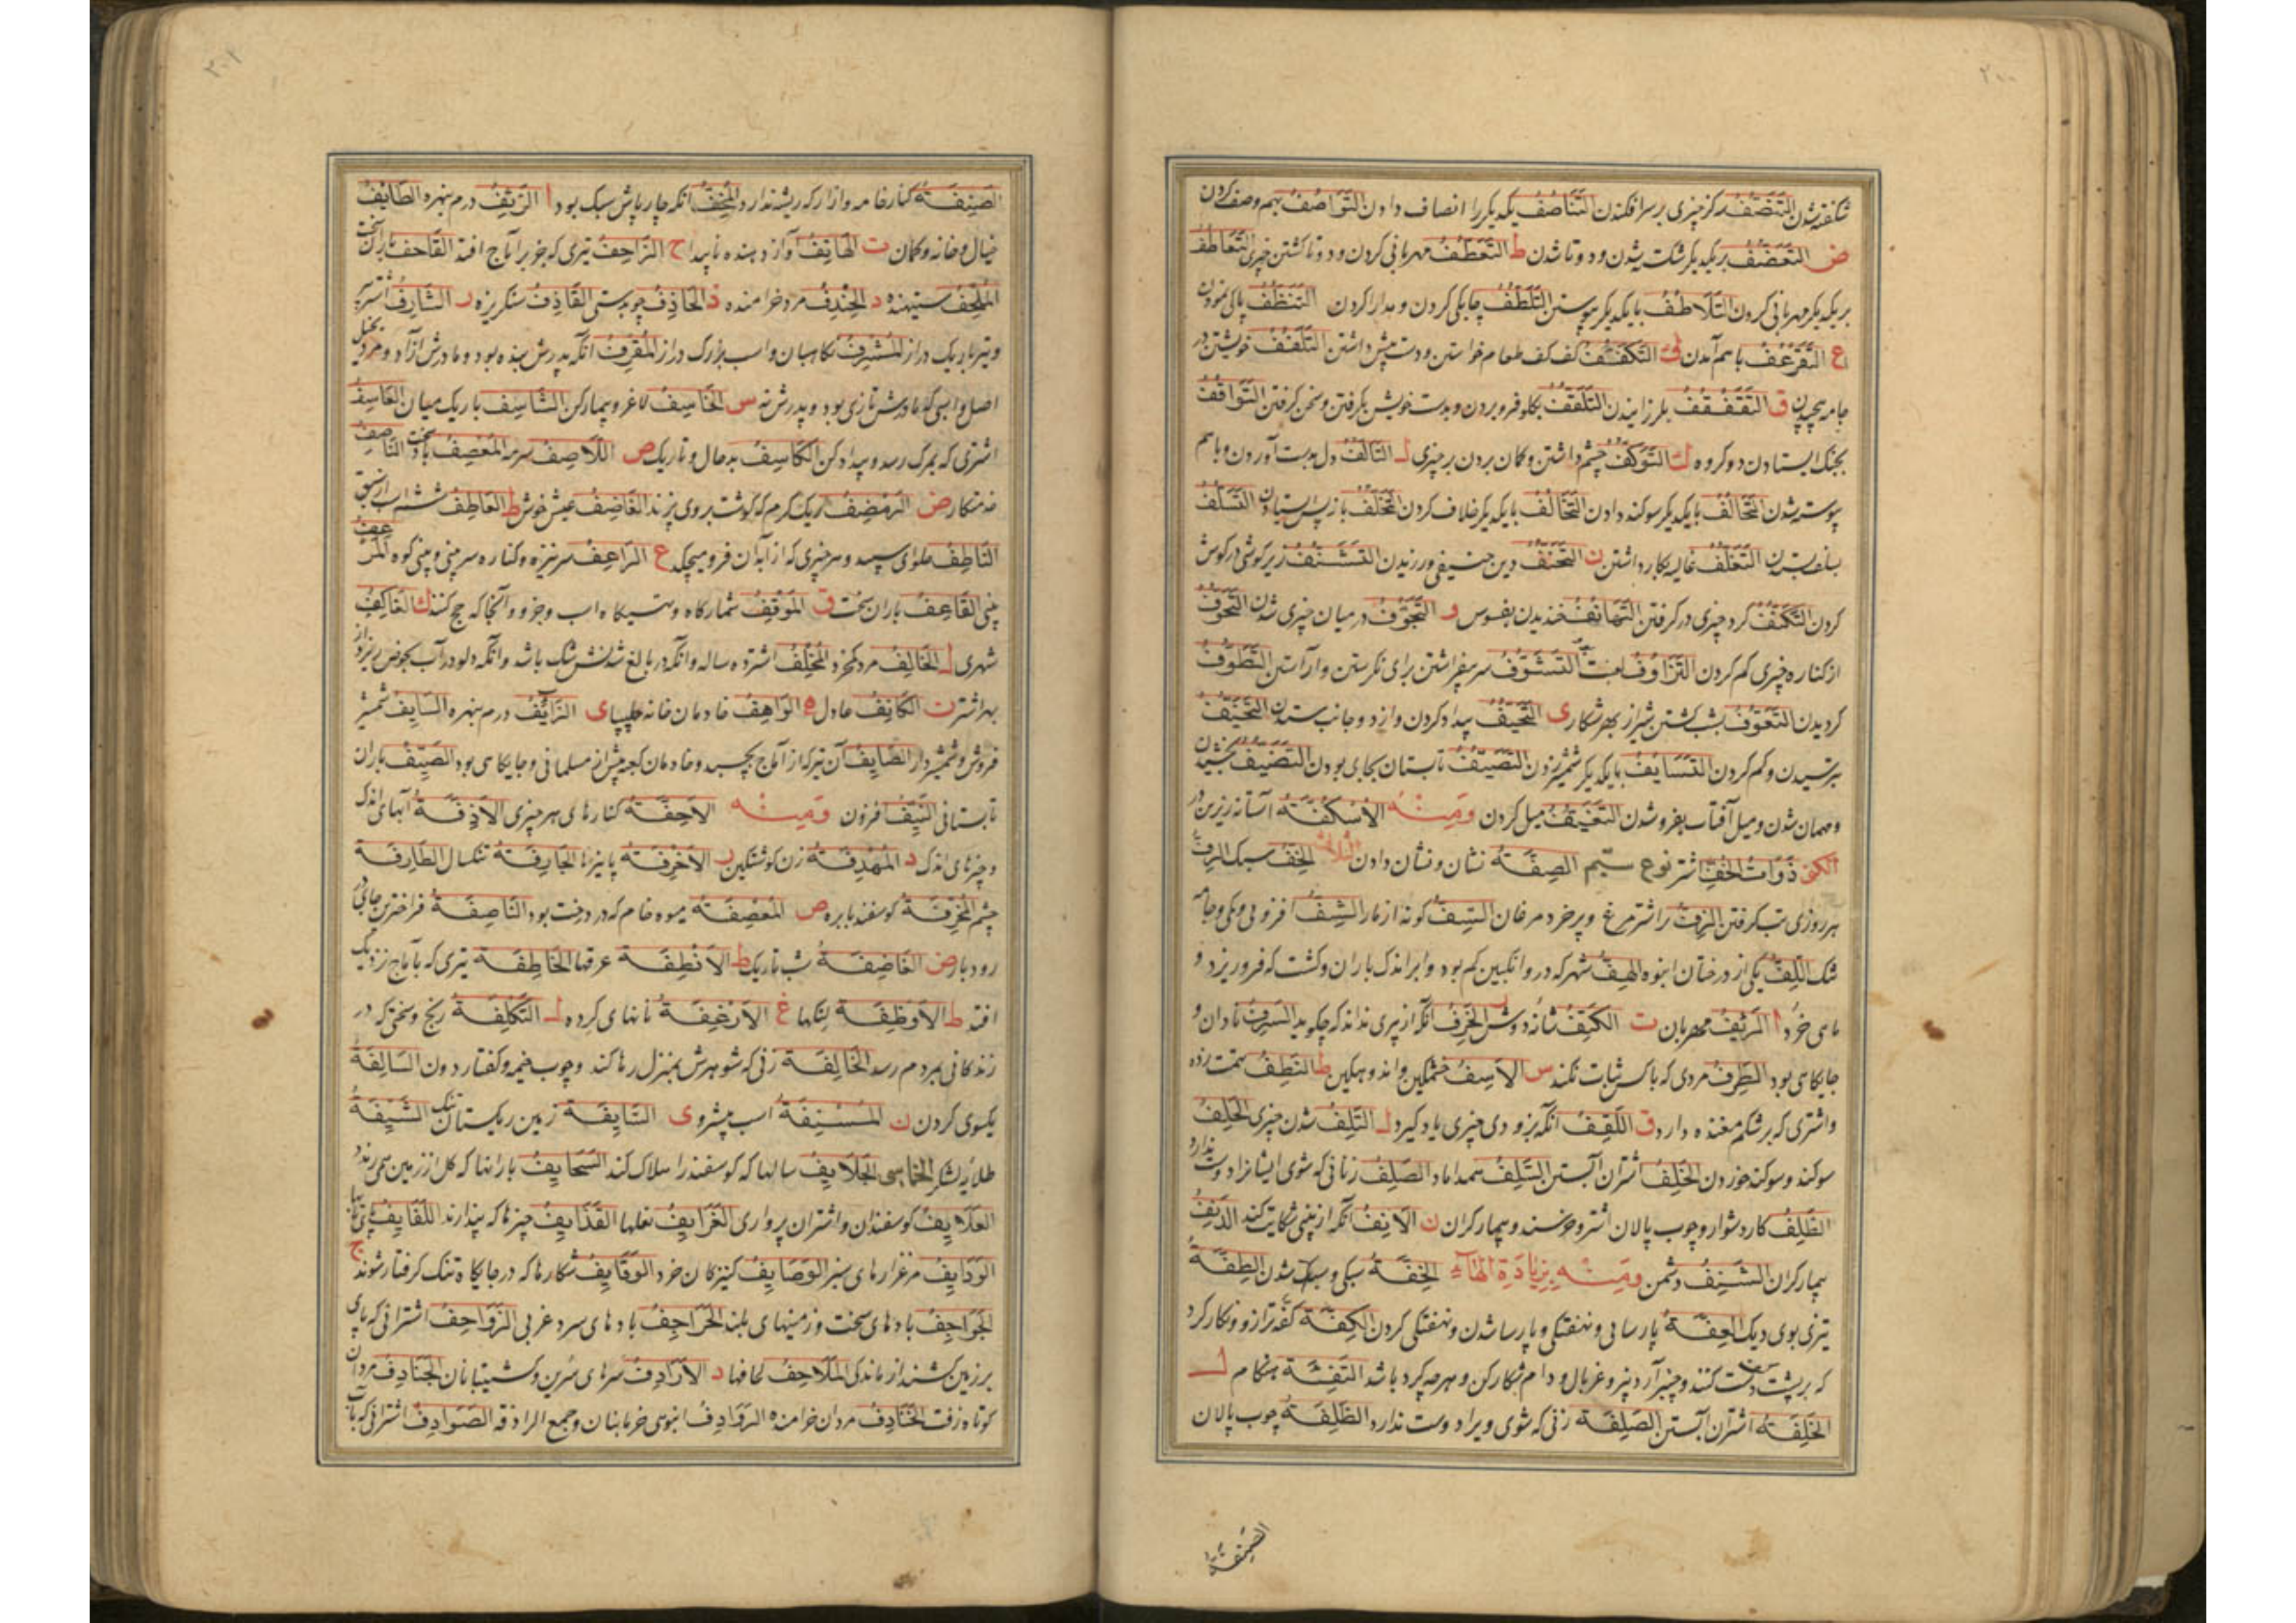 شکفته شدن التَّنَصُّفُ کز چیزی بر سر افکندن التَّنَاصُفُ یکدیگر را انصاف دادن التَّوَاصُفُ بهم وصف کردن
ض التَّغَضُّفُ بریکدیگر شکسته شدن و دوتا شدن ط التَّعَطُّفُ مهربانی کردن و دوتا گشتن چیزی التَّعَاطُفُ
بریکدیگر مهربانی کردن التَّلَاطُفُ بایکدیگر پیوستن التَّلَطُّفُ چابکی کردن و مدارا کردن التَّنَظُّفُ پاکی نمودن
ع التَّقَرْعُفُ باهم آمدن ف التَّکَفُّفُ کف کف طعام خواستن و دست پیش داشتن التَّلَفُّفُ خویشتن در
جامه پیچیدن ق التَّقَفْقُفُ بلرزانیدن التَّلَقُّفُ بکلو فرو بردن و بدست خویش بگرفتن و سخن گرفتن التَّوَاقُفُ
بجنگ ایستادن دو کروه ک التَّوَکُّفُ چشم داشتن و کمان بردن بر چیزی ل التَّأَلُّفُ دل بدست آوردن و باهم
پیوسته شدن التَّحَالُفُ بایکدیگر سوکند دادن التَّخَالُفُ بایکدیگر خلاف کردن التَّخَلُّفُ باز پس ایستادن التَّسَلُّفُ
التَّغَلُّفُ غالیه بکار داشتن ن التَّحَنُّفُ دین حنیفی ورزیدن التَّشَنُّفُ زیر کوشی در کوش
کردن التَّکَنُّفُ کرد چیزی در گرفتن التَّهَانُفُ خندیدن بفسوس و التَّجَوُّفُ در میان چیزی شدن التَّحَوُّفُ
از کناره چیزی کم کردن التَّزَاوُفُ التَّشَوُّفُ سر بر افراشتن برای نکرستن و آراستن التَّطَوُّفُ
کردیدن التَّعَوُّفُ بشب کشتن شیر از بهر شکار ی التَّحَیُّفُ بیداد کردن و از دو جانب ستدن التَّخَیُّفُ
بترسیدن و کم کردن التَّسَایُفُ بایکدیگر شمشیر زدن التَّصَیُّفُ تابستان بجای بودن التَّضَیُّفُ
و مهمان شدن و میل آفتاب بفرو شدن التَّغَیُّفُ میل کردن وَمِنْهُ الاُسْکُفَّةُ آستانه زیرین در
ذَوَاتُ الخُفِّ اشتر نوع سیّم الصِفَةُ نشان و نشان دادن الثلاثی الخِفُّ سبک
هر روزی تب گرفتن الزِفُّ پر اشتر مرغ و پر خرد مرغان السِّفُّ کونه از مار الشِفُّ افزونی و کمی و جامه
تنک اللِّفُّ یکی از درختان انبوه الهِفُّ شهد که در وانکبین کم بود و ابر اندک باران و کشت که فرو ریزد و
ماهی خرد ا الرَّئِفُ مهربان ت الکَتِفُ شانه دوش ر الخَرِفُ آنکه از پیری نداند که چکوید السَّرِفُ نادان و
جایکاهی بود الطَّرِفُ مردی که با کس ثبات نکند س الاَسِفُ خشمکین و اندوهکین ط النَّطِفُ تهمت زده
و اشتری که بر شکم مغنده دارد ق اللَّقِفُ آنکه بزودی چیزی یاد کیرد ل التَّلِفُ شدن چیزی الحَلِفُ
سوکند و سوکند خوردن الخَلِفُ اشتران آبستن السَّلِفُ همداماد الصَّلِفُ زنانی که شوی ایشانرا دوست ندارد
الظَّلِفُ کار دشوار و چوب پالان اشتر و خرسند و بیمار کران ن الاَنِفُ آنکه از بینی شکایت کند الدَّنِفُ
بیمار کران الشَّنِفُ دشمن وَمِنْهُ بِزِیَادَةِ الهَاءِ الخِفَّةُ سبکی و سبک شدن الطِفَّةُ
تیزی بوی دیک العِفَّةُ پارسایی و نهفتکی و پارسا شدن و نهفتکی کردن الکِفَّةُ کفه ترازو و نکار کرد
که بر پشت دست کنند و چنبر آرد بیز و غربال و دام شکار کن و هر چه کرد باشد التَّئِفَّةُ هنکام ل
الخَلِفَةُ اشتران آبستن الصَلِفَةُ زنی که شوی ویرا دوست ندارد الظَلِفَةُ چوب پالان
الصَنِفَةُ
الصَنِفَةُ کنار جامه و ازار که ریشه ندارد المُخِفُّ آنکه چارپاش سبک بود ا الزَّئِفُ درم نبهره الطَّائِفُ
خیال و خانه و کمان ت الهَاتِفُ آواز دهنده ناپیدا ح الزَّاحِفُ تیری که بر آماج افتد القَاحِفُ باران سخت
المُلْحِفُ ستیهنده د الخِنْدِفُ مرد خرامنده ذ الحَاذِفُ چوبدستی القَاذِفُ سنکریزه ر الشَّارِفُ اشتر پیر
و تیر باریک دراز المُشْرِفُ نکاهبان و اسب بزرک دراز المُقْرِفُ آنکه پدرش بنده بود و مادرش آزاد و مردی بخیل
اصل و اسبی که مادرش تازی بود و پدرش نه س الخَاسِفُ لاغر و بیمار کن الشَّاسِفُ باریک میان العَاسِفُ
اشتری که بمرک رسد و بیداد کن الکَاسِفُ بدحال و تاریک ص اللَّاصِفُ سرمه المُعْصِفُ باد سخت النَّاصِفُ
خدمتکار ض الرَّضِفُ ریک کرم که کوشت بروی پزند الغَاضِفُ عیش خوش ط العَاطِفُ ششم اسب از سبق
النَّاطِفُ حلوای سپید و هر چیزی که از آبدان فرو میچکد ع الرَّاعِفُ سر نیزه و کناره سر بینی و بینی کوه
بینی القَاعِفُ باران سخت ق المَوْقِفُ شمارگاه و دستیکاه اسب و جزو و آنجا که حج کنند ک العَاکِفُ
شهری ل الخَالِفُ مرد کم خرد المُخْلِفُ اشتر ده ساله و آنکه در بالغ شدنش شک باشد و آنکه دلو در آب بحوض ریزد از
بهر اشتر ن الکَانِفُ عادل ه الوَاهِفُ خادمان خانه چلیپا ی الزَّایِفُ درم نبهره السَّایِفُ شمشیر
فروش و شمشیردار الصَّایِفُ آن تیر که از آماج بچسبد و خادمان کعبه پیش از مسلمانی و جایکاهی بود الصَّیِّفُ باران
تابستانی النَّیِّفُ افزون وَمِنْهُ الاَحِفَّةُ کنارهای هر چیزی الاَذِفَّةُ آبهای اندک
و چیزهای اندک د المُهْدِفَةُ زن کوشتکین ر الاَخْرِفَةُ پاییزها الجَارِفَةُ تنکسال الطَارِفَةُ
چشم المُخْرِفَةُ کوسفند با بره ص المُعْصِفَةُ میوه خام که در درخت بود النَّاصِفَةُ فراخترین جای در
رودبار ض الغَاضِفَةُ شب تاریک ط الاَنْطِفَةُ عرقها الخَاطِفَةُ تیری که بآماج نزدیک
افتد ظ الاَوْظِفَةُ لنکها غ الاَرْغِفَةُ نانهای کرده ل التَّکْلِفَةُ رنج و سختی که در
زندکانی بمردم رسد الخَالِفَةُ زنی که شوهرش بمنزل رها کند و چوب خیمه و کفتار دون السَّالِفَةُ
یکسوی کردن ن المُسْنِفَةُ اسب پیشرو ی النَّایِفَةُ زمین ریکستان تنک الشَّیِّفَةُ
طلایه لشکر الخماسی الجَلَایِفُ سالها که کوسفند را هلاک کند السَّحَایِفُ بارانها که کل از زمین همی رندد
العَلَایِفُ کوسفندان و اشتران پرواری الغَرَایِفُ نعلها القَذَایِفُ چیزها که بیندازند اللَّفَایِفُ
الوَدَایِفُ مرغزارهای سبز الوَصَایِفُ کنیزکان خرد الوَقَایِفُ شکارها که در جایکاه تنک گرفتار شوند ج
الجَوَاجِفُ بادهای سخت و زمینهای بلند الحَرَاجِفُ بادهای سرد غربی الزَّوَاحِفُ اشترانی که پای
بر زمین کشند از ماندکی المَلَاحِفُ لحافها د الاَرَادِفُ سرهای سرین و کشتیبانان الجَنَادِفُ مردان
کوتاه زفت الخَنَادِفُ مردان خرامنده الرَّوَادِفُ انبوهی خربانان و جمع الرادفة الصَّوَادِفُ اشترانی که بآب